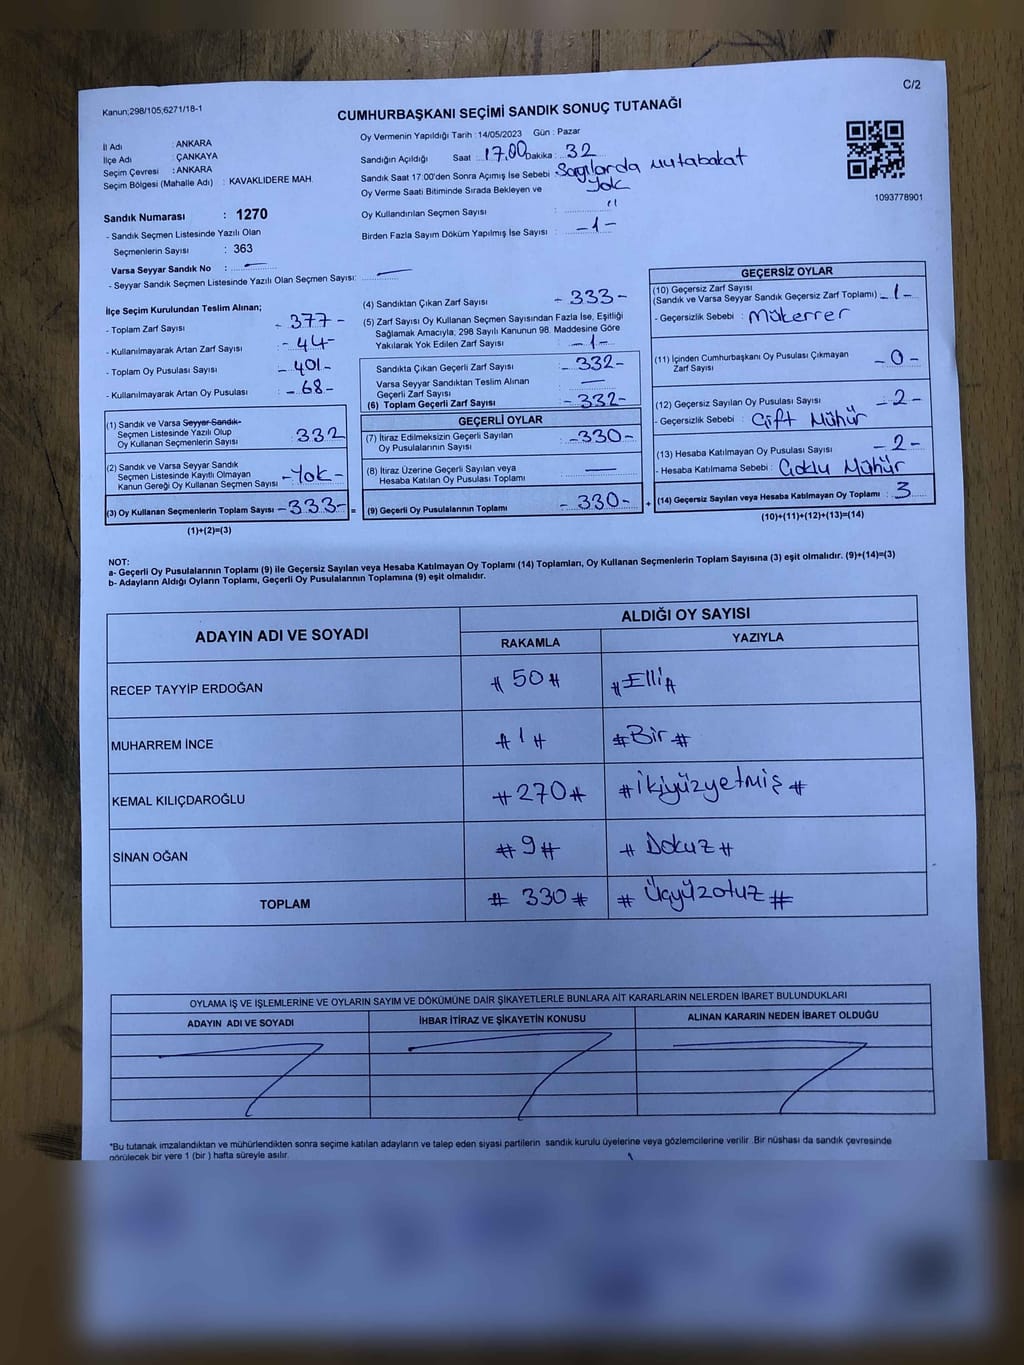 C/2
Kanun;298/105;6271/18-1
CUMHURBAŞKANI SEÇİMİ SANDIK SONUÇ TUTANAĞI
İl Adı : ANKARA
İlçe Adı : ÇANKAYA
Seçim Çevresi : ANKARA
Seçim Bölgesi (Mahalle Adı) : KAVAKLIDERE MAH.
Sandık Numarası : 1270
- Sandık Seçmen Listesinde Yazılı Olan
Seçmenlerin Sayısı : 363
Varsa Seyyar Sandık No :
- Seyyar Sandık Seçmen Listesinde Yazılı Olan Seçmen Sayısı:
Oy Vermenin Yapıldığı Tarih : 14/05/2023 Gün : Pazar
Sandığın Açıldığı Saat 17.00 Dakika : 32
Sandık Saat 17:00'den Sonra Açımış İse Sebebi : Sayılarda mutabakat
Yok
Oy Verme Saati Bitiminde Sırada Bekleyen ve
Oy Kullandırılan Seçmen Sayısı : "
Birden Fazla Sayım Döküm Yapılmış İse Sayısı : -1-
1093778901
İlçe Seçim Kurulundan Teslim Alınan;
- Toplam Zarf Sayısı : - 377 -
- Kullanılmayarak Artan Zarf Sayısı : - 44 -
- Toplam Oy Pusulası Sayısı : - 401 -
- Kullanılmayarak Artan Oy Pusulası : - 68 -
(1) Sandık ve Varsa Seyyar Sandık
Seçmen Listesinde Yazılı Olup
Oy Kullanan Seçmenlerin Sayısı : 332
(2) Sandık ve Varsa Seyyar Sandık
Seçmen Listesinde Kayıtlı Olmayan
Kanun Gereği Oy Kullanan Seçmen Sayısı - Yok -
(3) Oy Kullanan Seçmenlerin Toplam Sayısı - 333 - =
(1)+(2)=(3)
(4) Sandıktan Çıkan Zarf Sayısı - 333 -
(5) Zarf Sayısı Oy Kullanan Seçmen Sayısından Fazla İse, Eşitliği
Sağlamak Amacıyla, 298 Sayılı Kanunun 98. Maddesine Göre
Yakılarak Yok Edilen Zarf Sayısı : - 1 -
Sandıkta Çıkan Geçerli Zarf Sayısı : - 332 -
Varsa Seyyar Sandıktan Teslim Alınan
Geçerli Zarf Sayısı :
(6) Toplam Geçerli Zarf Sayısı : - 332 -
GEÇERLİ OYLAR
(7) İtiraz Edilmeksizin Geçerli Sayılan
Oy Pusulasının Sayısı : - 330 -
(8) İtiraz Üzerine Geçerli Sayılan veya
Hesaba Katılan Oy Pusulası Toplamı :
(9) Geçerli Oy Pusulalarının Toplamı : - 330 - +
GEÇERSİZ OYLAR
(10) Geçersiz Zarf Sayısı
(Sandık ve Varsa Seyyar Sandık Geçersiz Zarf Toplamı) - 1 -
- Geçersizlik Sebebi : Mükerrer
(11) İçinden Cumhurbaşkanı Oy Pusulası Çıkmayan
Zarf Sayısı - 0 -
(12) Geçersiz Sayılan Oy Pusulası Sayısı - 2 -
- Geçersizlik Sebebi : Çift Mühür
(13) Hesaba Katılmayan Oy Pusulası Sayısı - 2 -
- Hesaba Katılmama Sebebi : Çoklu Mühür
(14) Geçersiz Sayılan veya Hesaba Katılmayan Oy Toplamı : 3
(10)+(11)+(12)+(13)=(14)
NOT:
a- Geçerli Oy Pusulalarının Toplamı (9) ile Geçersiz Sayılan veya Hesaba Katılmayan Oy Toplamı (14) Toplamları, Oy Kullanan Seçmenlerin Toplam Sayısına (3) eşit olmalıdır. (9)+(14)=(3)
b- Adayların Aldığı Oyların Toplamı, Geçerli Oy Pusulalarının Toplamına (9) eşit olmalıdır.
ADAYIN ADI VE SOYADI
ALDIĞI OY SAYISI
RAKAMLA YAZIYLA
RECEP TAYYİP ERDOĞAN # 50 # # Elli #
MUHARREM İNCE # 1 # # Bir #
KEMAL KILIÇDAROĞLU # 270 # # ikiyüzyetmiş #
SİNAN OĞAN # 9 # # Dokuz #
TOPLAM # 330 # # Üçyüzotuz #
OYLAMA İŞ VE İŞLEMLERİNE VE OYLARIN SAYIM VE DÖKÜMÜNE DAİR ŞİKAYETLERLE BUNLARA AİT KARARLARIN NELERDEN İBARET BULUNDUKLARI
ADAYIN ADI VE SOYADI İHBAR İTİRAZ VE ŞİKAYETİN KONUSU ALINAN KARARIN NEDEN İBARET OLDUĞU
*Bu tutanak imzalandıktan ve mühürlendikten sonra seçime katılan adayların ve talep eden siyasi partilerin sandık kurulu üyelerine veya gözlemcilerine verilir. Bir nüshası da sandık çevresinde
görülecek bir yere 1 (bir ) hafta süreyle asılır.